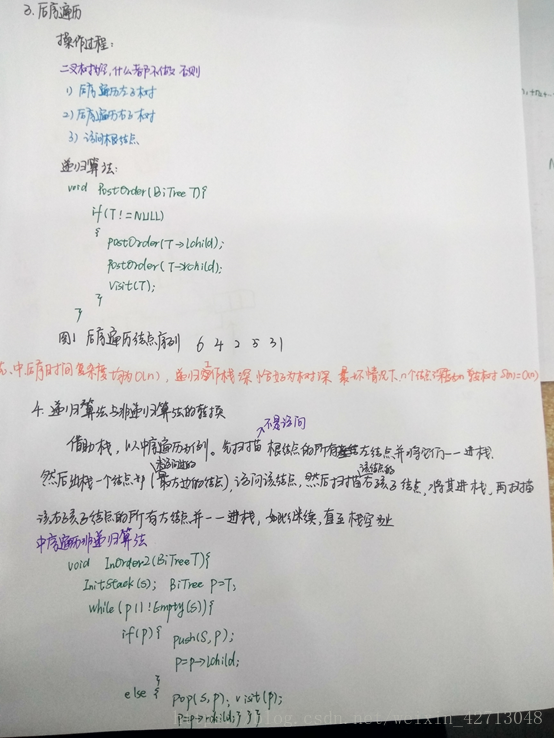 3. 后序遍历
操作过程:
二叉树为空,什么都不做 否则
1) 后序遍历左子树
2) 后序遍历右子树
3) 访问根结点
递归算法:
void PostOrder(BiTree T){
if(T!=NULL)
{
postOrder(T→lchild);
postOrder(T→rchild);
visit(T);
}
}
图1 后序遍历结点序列 6 4 2 5 3 1
、中、后序时间复杂度均为O(n), 递归工作栈深恰好为树深 最坏情况下n个结点 S(n)=O(n)
4. 递归算法与非递归算法的转换
不是访问
借助栈,以中序遍历为例。先扫描 根结点的所有左结点并将它们一一进栈.
然后出栈一个结点 (最左边的结点),访问该结点,然后扫描该结点的右孩子结点,将其进栈,再扫描
该右孩子结点的所有左结点并一一进栈,如此继续,直至栈空为止
中序遍历非递归算法
void InOrder2(BiTree T){
InitStack(S); BiTree p=T;
while(p||!Empty(S)){
if(p){ push(S,p);
p=p→lchild;
}
else { pop(S,p); visit(p);
p=p→rchild; } } }
blog.csdn.net/weixin_42713048